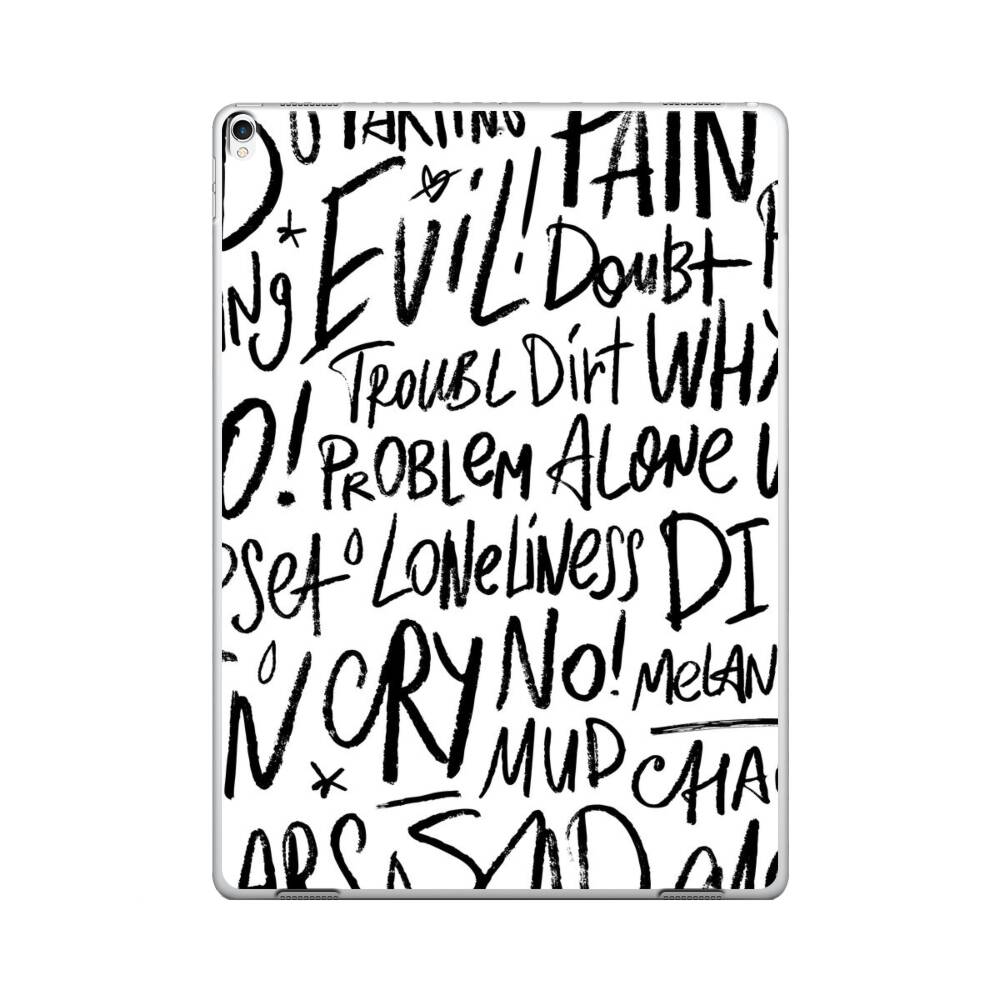 PAIN
EVIL!
Doubt
TROUBL Dirt WHY
O! PROBLEM ALONE
LONELINESS DI
CRY NO! MELAN
MUD CHA
ARS SAD